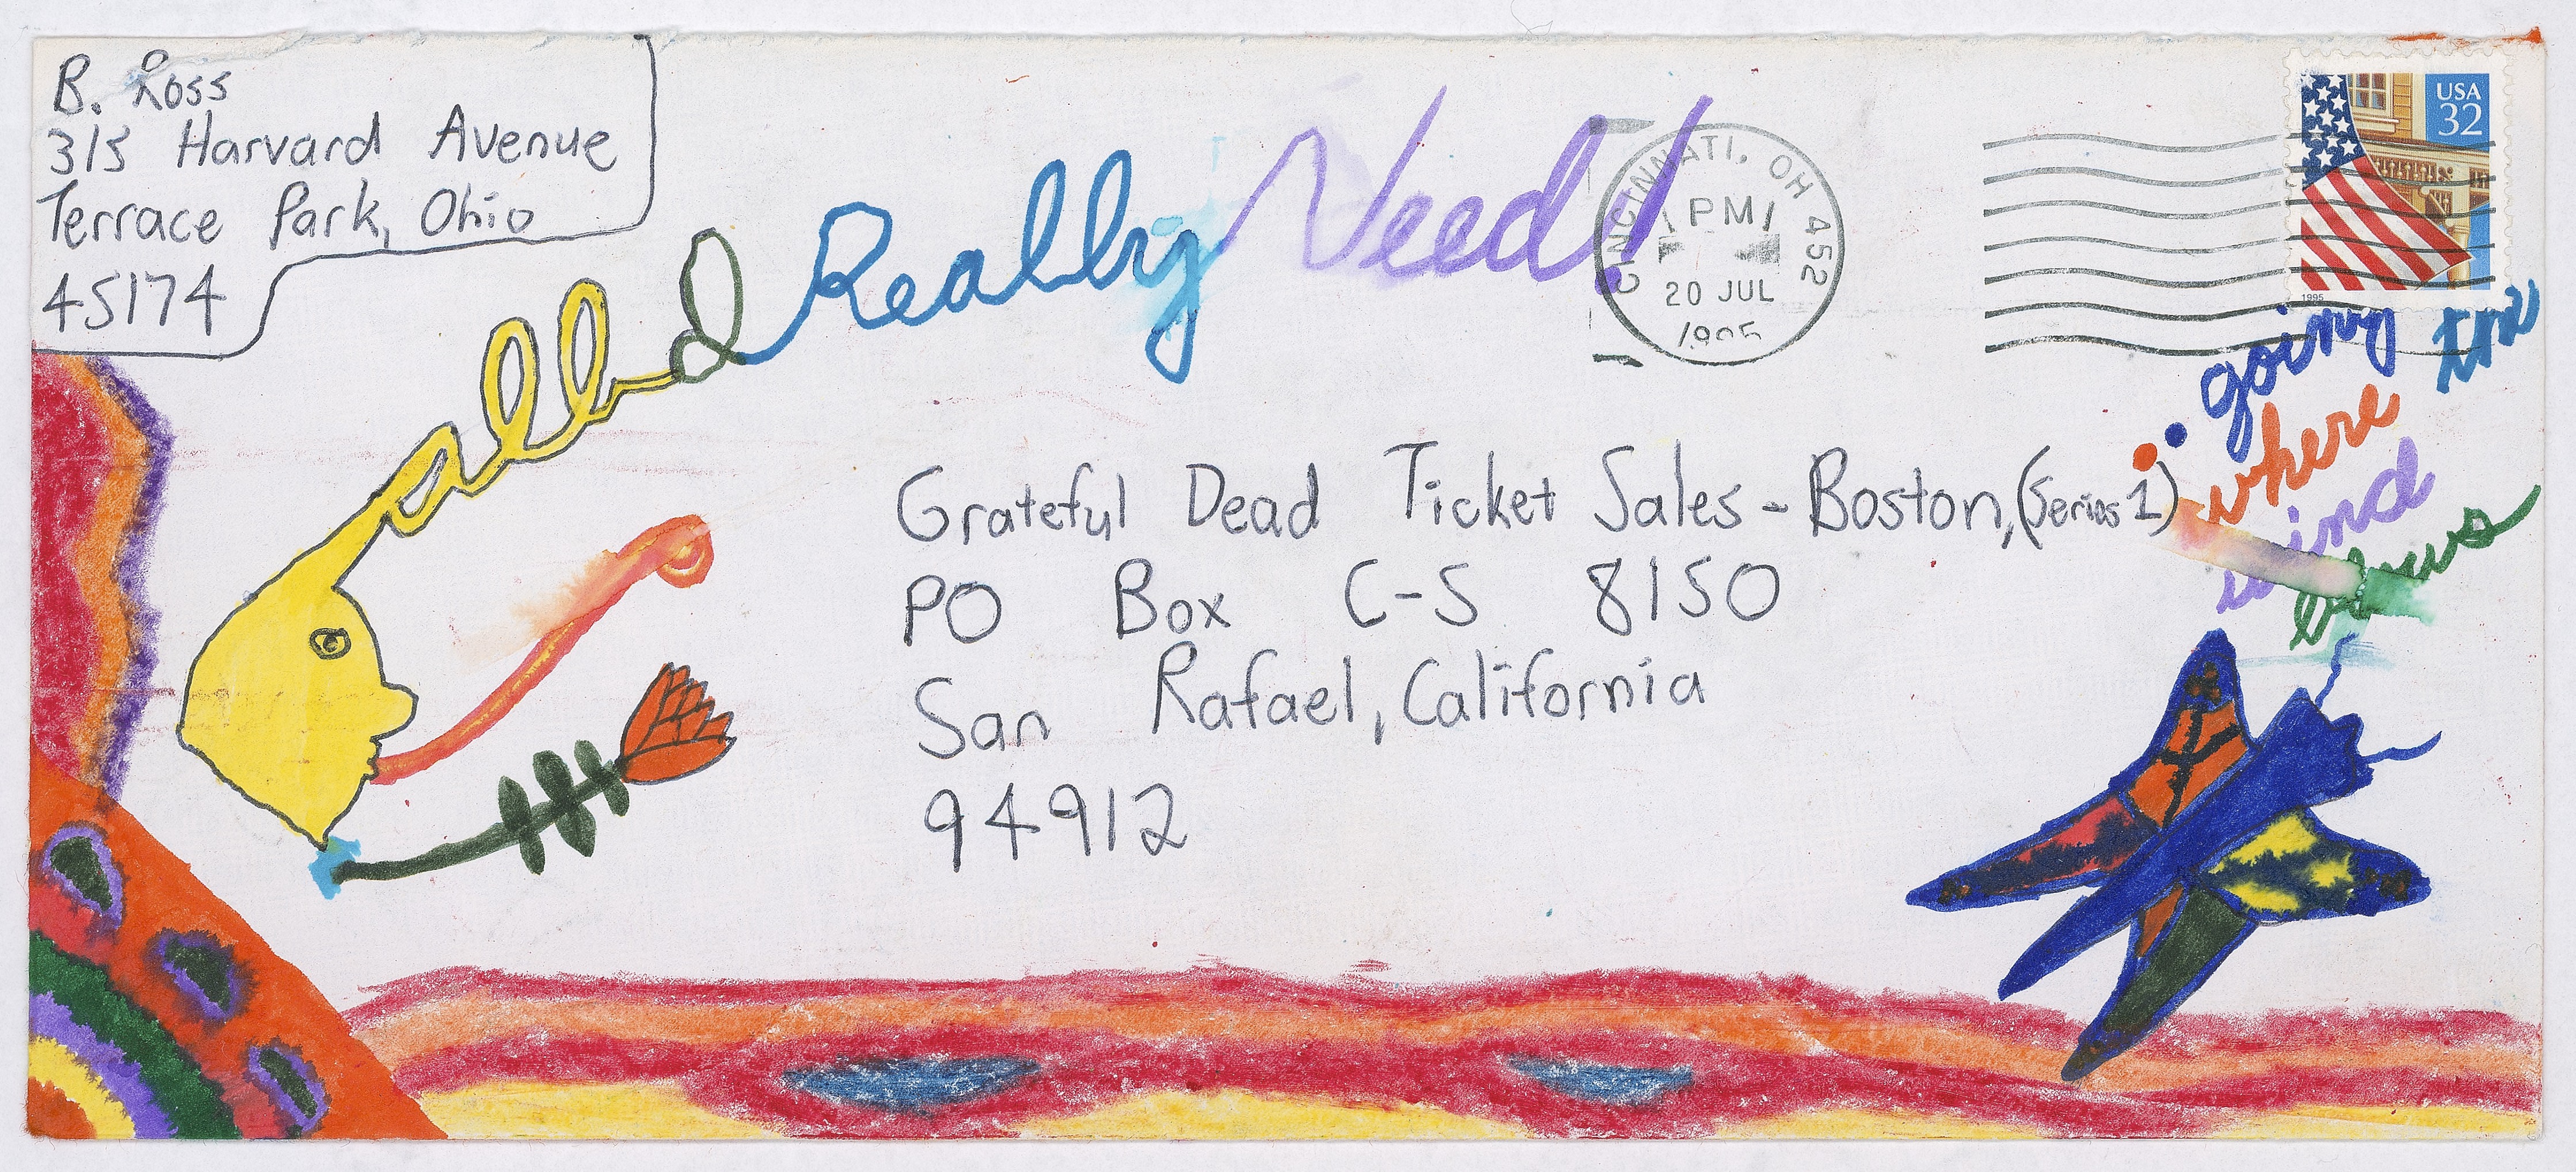 B. Ross
313 Harvard Avenue
Terrace Park, Ohio
45174
all I Really Need!
CINCINNATI, OH 452
PM
20 JUL
1995
USA
32
1995
going
where the
wind
blows
Grateful Dead Ticket Sales - Boston, (Series 1)
PO Box C-S 8150
San Rafael, California
94912